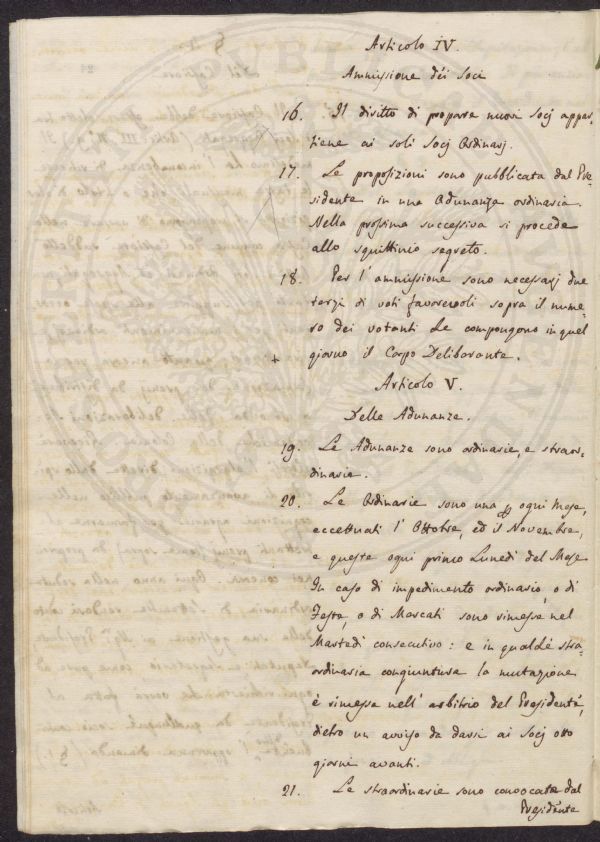 Articolo IV.
Ammissione déi Soci
16. Il diritto di proporre nuovi Socj appar-
tiene ai soli Socj Ordinarj.
17. Le proposizioni sono pubblicata dal Pre-
sidente in una Adunanza ordinaria.
Nella prossima successiva si procede
allo squittinio segreto.
18. Per l'ammissione sono necessarj due
terzi di voti favorevoli sopra il nume-
ro dei votanti che compongono in quel
giorno il Corpo Deliberante.
Articolo V.
Delle Adunanze.
19. Le Adunanze sono ordinarie, e straor-
dinarie.
20. Le Ordinarie sono una ogni Mese,
eccettuati l'Ottobre, ed il Novembre,
e queste ogni primo Lunedì del Mese
In caso di impedimento ordinario, o di
Feste, o di Mercati sono rimesse nel
Martedì consecutivo: e in qualche stra-
ordinaria congiuntura la mutazione
è rimessa nell'arbitrio del Presidente,
dietro un avviso da darsi ai Socj otto
giorni avanti.
21. Le straordinarie sono convocate dal
Presidente